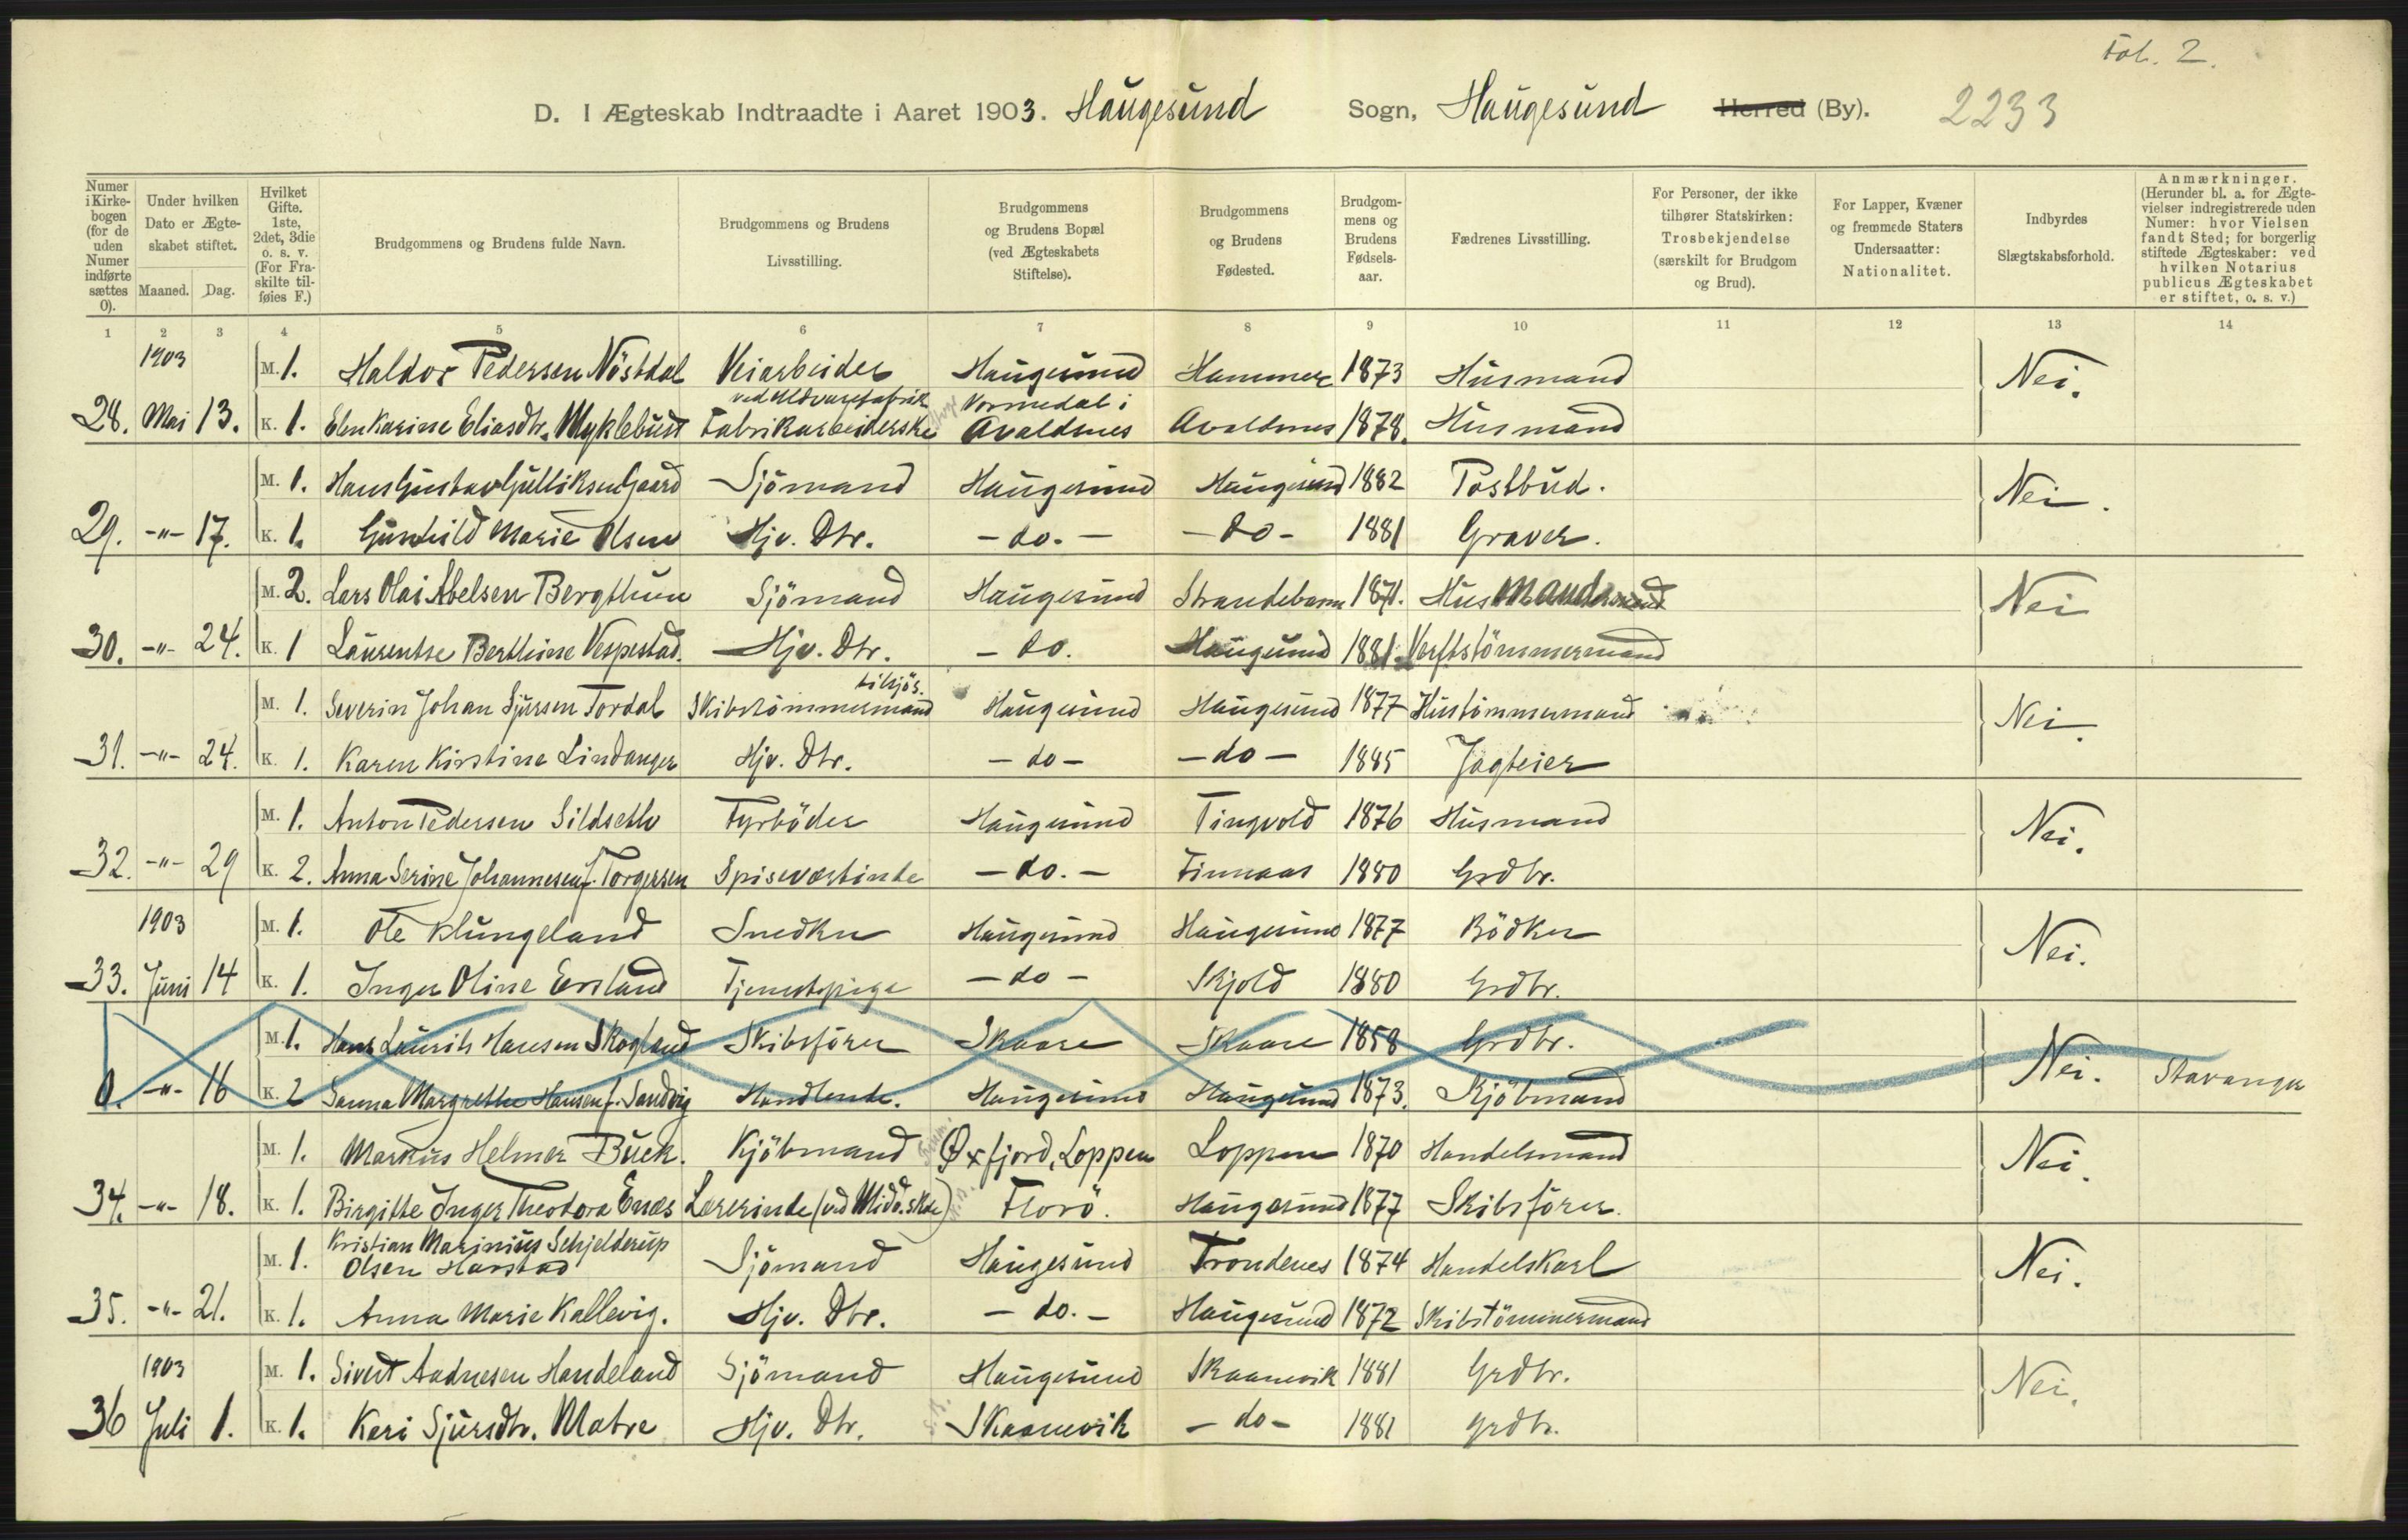 Fol. 2.
D. I Ægteskab Indtraadte i Aaret 1903. Haugesund Sogn, Haugesund Herred (By). 2233
Numer i Kirkebogen (for de uden Numer indførte sættes 0).
Under hvilken Dato er Ægteskabet stiftet.
Maaned. Dag.
Hvilket Gifte. 1ste, 2det, 3die o. s. v. (For Fraskilte tilføies F.)
Brudgommens og Brudens fulde Navn.
Brudgommens og Brudens Livsstilling.
Brudgommens og Brudens Bopæl (ved Ægteskabets Stiftelse).
Brudgommens og Brudens Fødested.
Brudgommens og Brudens Fødselsaar.
Fædrenes Livsstilling.
For Personer, der ikke tilhører Statskirken: Trosbekjendelse (særskilt for Brudgom og Brud).
For Lapper, Kvæner og fremmede Staters Undersaatter: Nationalitet.
Indbyrdes Slægtskabsforhold.
Anmærkninger. (Herunder bl. a. for Ægtevielser indregistrerede uden Numer: hvor Vielsen fandt Sted; for borgerlig stiftede Ægteskaber: ved hvilken Notarius publicus Ægteskabet er stiftet, o. s. v.)
1 2 3 4 5 6 7 8 9 10 11 12 13 14
1903 M. 1. Haldor Pedersen Nöstdal Veiarbeider Haugesund Hammer 1873 Husmand Nei.
ved Uldvarefabrik Vormedal i
28. Mai 13. K. 1. Elen Karine Eliasdtr. Myklebust Fabrikarbeiderske Avaldsnes Avaldsnes 1878. Husmand
M. 1. Hans Gustav Gulliksen Gaard Sjömand Haugesund Haugesund 1882 Postbud. Nei.
29. -"- 17. K. 1. Gunhild Marie Olsen Hjv. Dtr. - do. - - do - 1881 Graver.
M. 2. Lars Olai Abelsen Bergthun Sjömand Haugesund Strandebarm 1871. Husmand Nei
30. -"- 24. K. 1 Laurentse Berthine Vespestad. Hjv. Dtr. - do. Haugesund 1881. Verftstömmermand
tilsjös.
M. 1. Severin Johan Sjursen Tordal Skibstömmermand Haugesund Haugesund 1877 Hustömmermand Nei.
31. -"- 24. K. 1. Karen Kirstine Lindanger Hjv. Dtr. - do - - do - 1885 Jagteier
M. 1. Anton Pedersen Sildseth Fyrböder Haugesund Tingvold 1876 Husmand Nei.
32. -"- 29 K. 2. Anna Serine Johannesen f. Torgersen Spiseværtinde - do. - Finnaas 1880 Grdbr.
1903 M. 1. Ole Klungeland Snedker Haugesund Haugesund 1877 Bödker Nei.
33. Juni 14 K. 1. Inger Oline Ersland Tjenestepige - do - Skjold 1880 Grdbr.
M. 1. Hans Laurits Hansen Skogland Skibsförer Skaare Skaare 1858 Grdbr. Nei.
0. -"- 16 K. 2 Sanna Margrethe Hansen f. Sandvig Handlende. Haugesund Haugesund 1873. Kjöbmand Stavanger
M. 1. Markus Helmer Buck. Kjöbmand Øxfjord, Loppen Loppen 1870 Handelsmand Nei.
34. -"- 18. K. 1. Birgitte Inger Theodora Enæs Lærerinde (ved Midd.skole) Florö. Haugesund 1877 Skibsförer.
Kristian Marinius Schjelderup
M. 1. Olsen Harstad Sjömand Haugesund Trondenes 1874 Handelskarl Nei.
35. -"- 21. K. 1. Anna Marie Kallevig. Hjv. Dtr. - do. - Haugesund 1872 Skibstömmermand
1903 M. 1. Sivert Aadnesen Handeland Sjömand Haugesund Skaanevik 1881 Grdbr. Nei.
36 Juli 1. K. 1. Kari Sjursdtr. Matre Hjv. Dtr. Skaanevik - do - 1881 Grdbr.